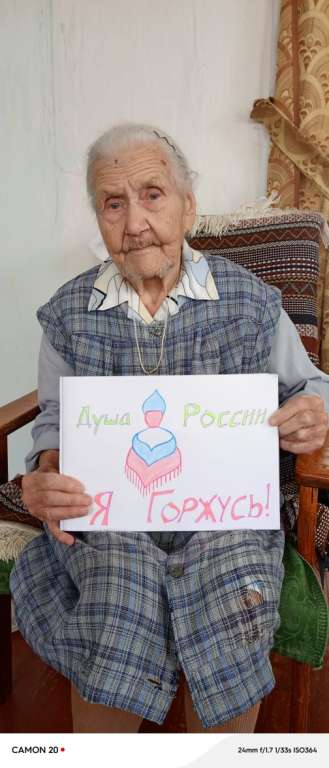 Душа России
Я Горжусь!
CAMON 20
24mm f/1.7 1/33s ISO364